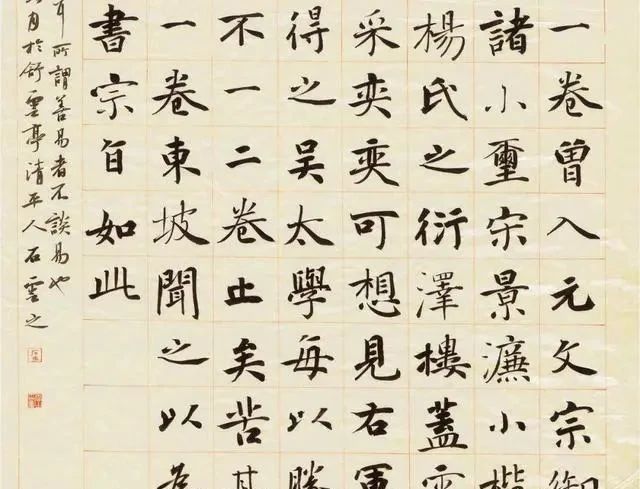 一卷曾入元文宗
諸小璽宋景濂小楷
楊氏之衍澤樓蓋
采奕奕可想見右軍
得之吴太學每以勝
不一二卷止矣苦
一卷東坡聞之以
書宗旨如此
耳所謂善易者不談易也
月於舒雲亭清平人石雲之